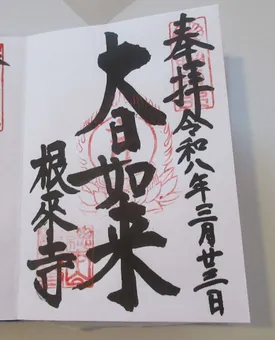 奉拝
令和八年三月廿三日
大日如来
根來寺